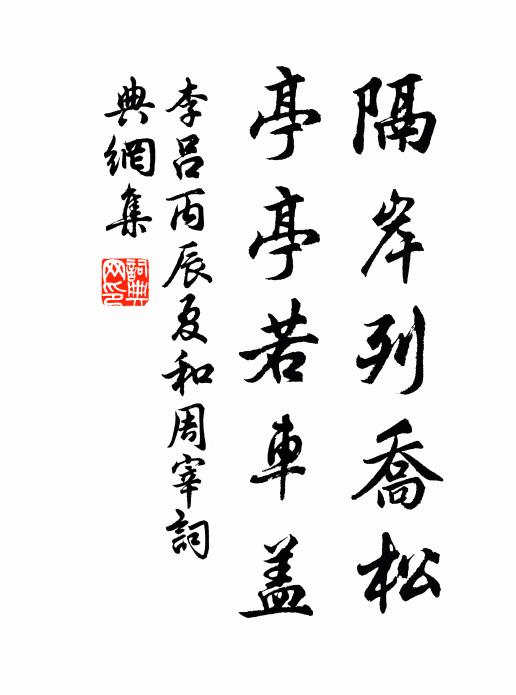 隔岸列喬松
亭亭若車盖
李呂丙辰夏和周宰詞
典網集
詞典
网印